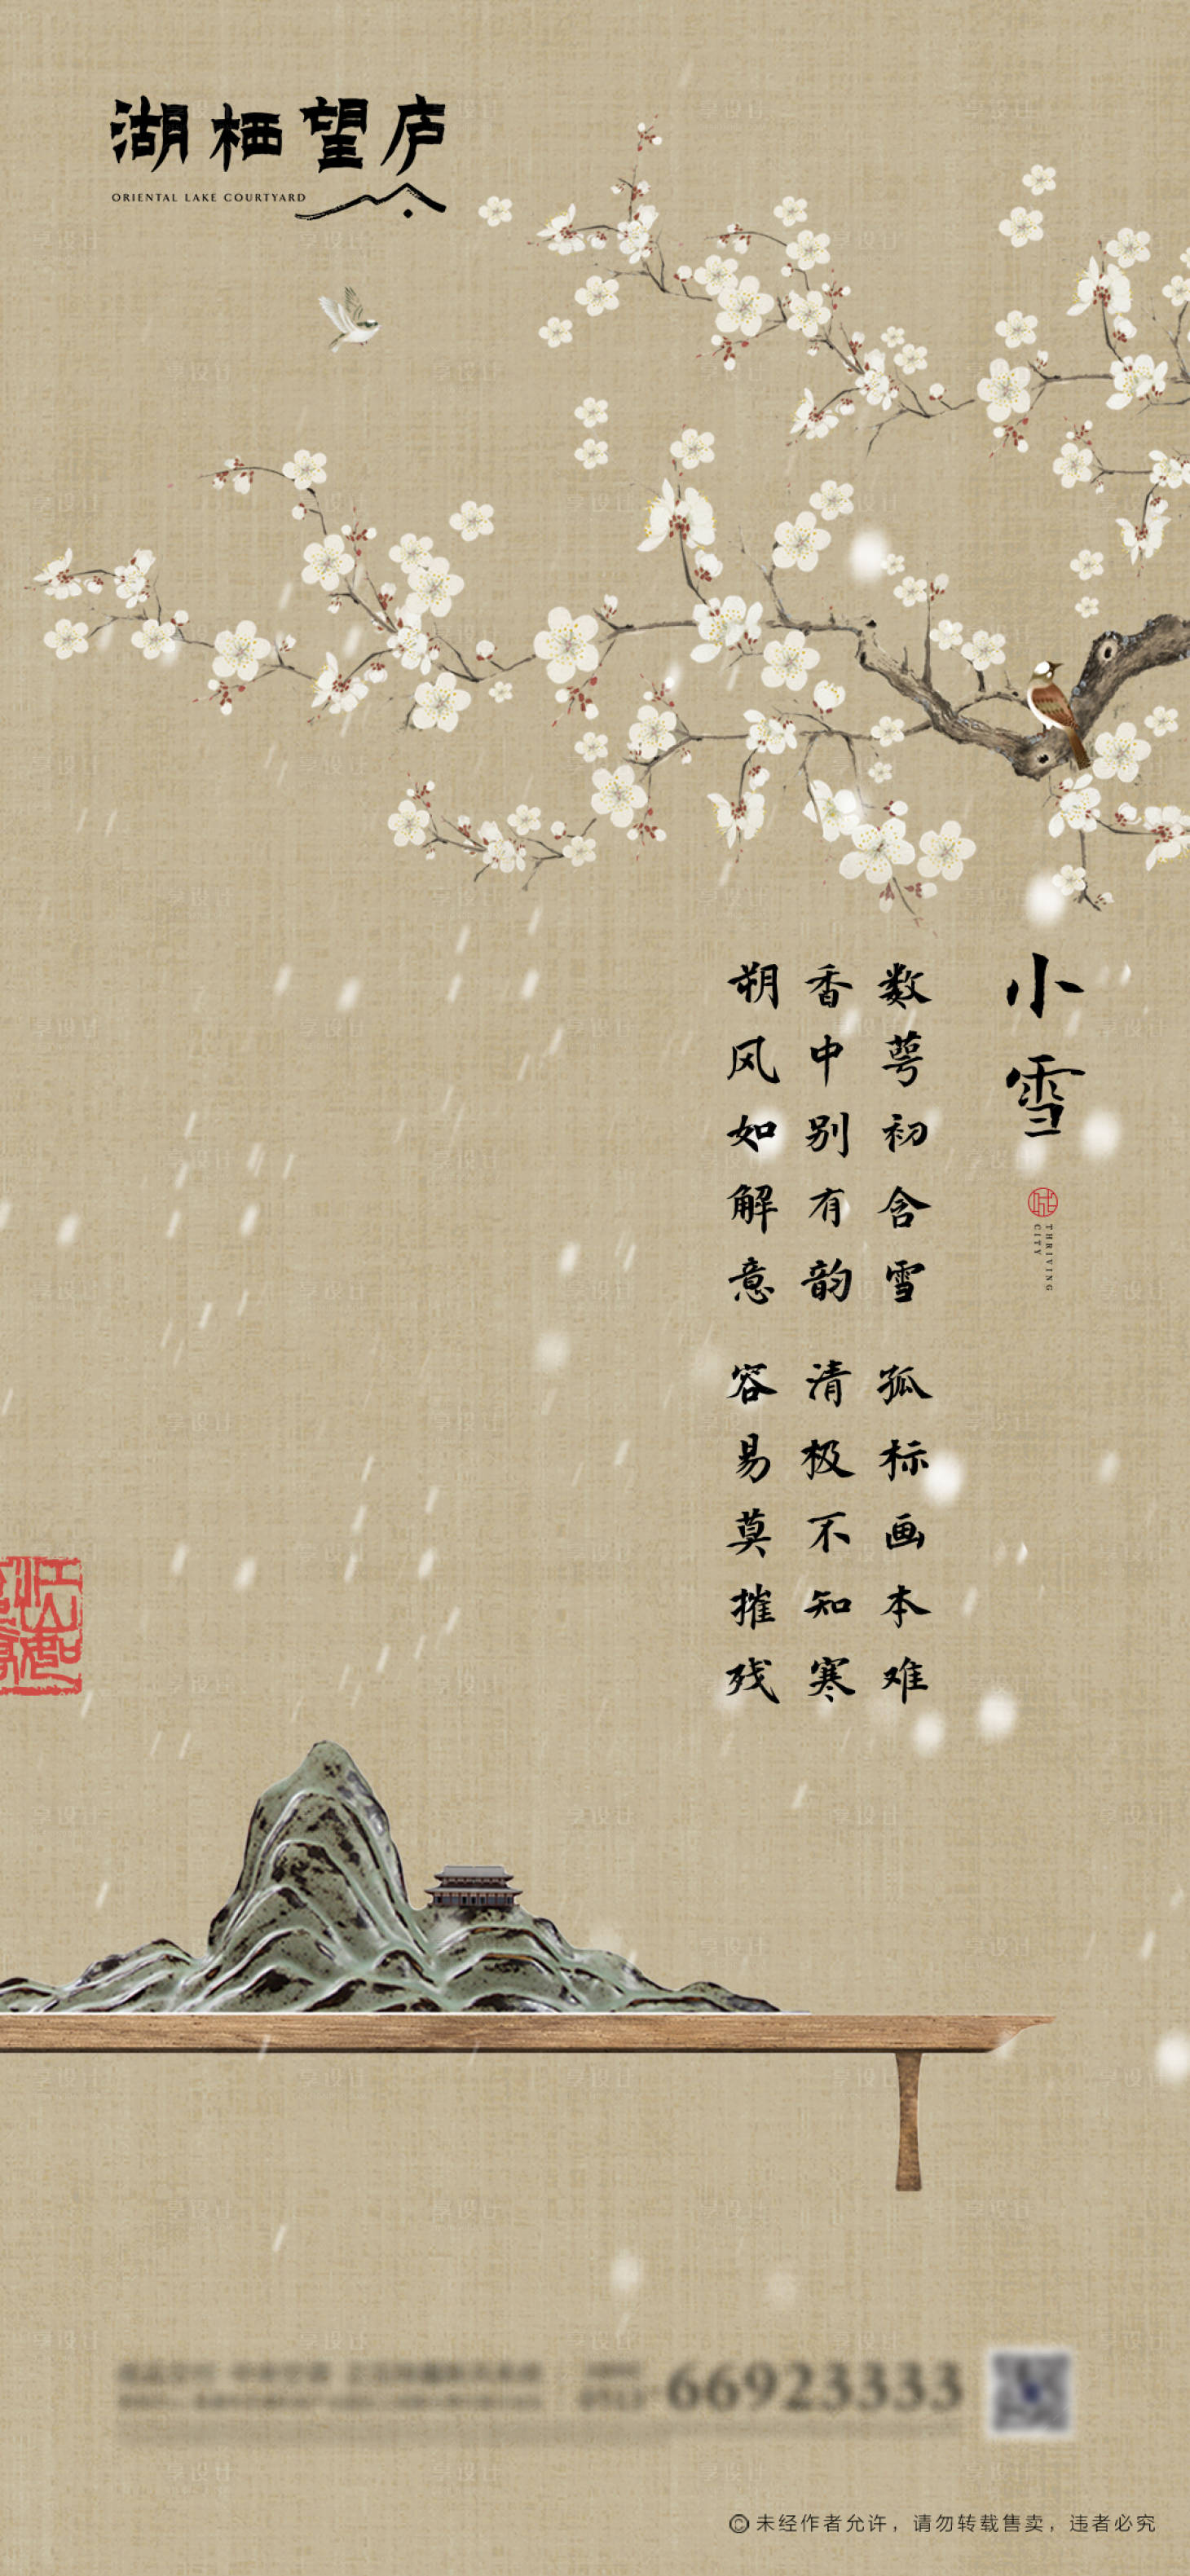 湖栖望庐
ORIENTAL LAKE COURTYARD
小雪
THRIVING
CITY
数萼初含雪 孤标画本难
香中别有韵 清极不知寒
朔风如解意 容易莫摧残
66923333
©未经作者允许，请勿转载售卖，违者必究